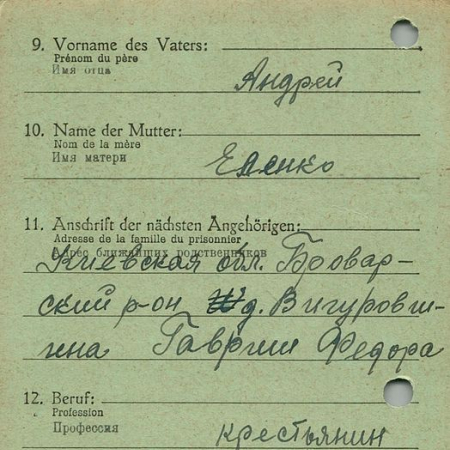 9. Vorname des Vaters:
Prénom du père
Имя отца
Андрей
10. Name der Mutter:
Nom de la mère
Имя матери
Еленко
11. Anschrift der nächsten Angehörigen:
Adresse de la famille du prisonnier
Адрес ближайших родственников
Киевская обл. Бровар-
ский р-он д. Вигуровщ-
ина Гаврищ Федора
12. Beruf:
Profession
Профессия
крестьянин